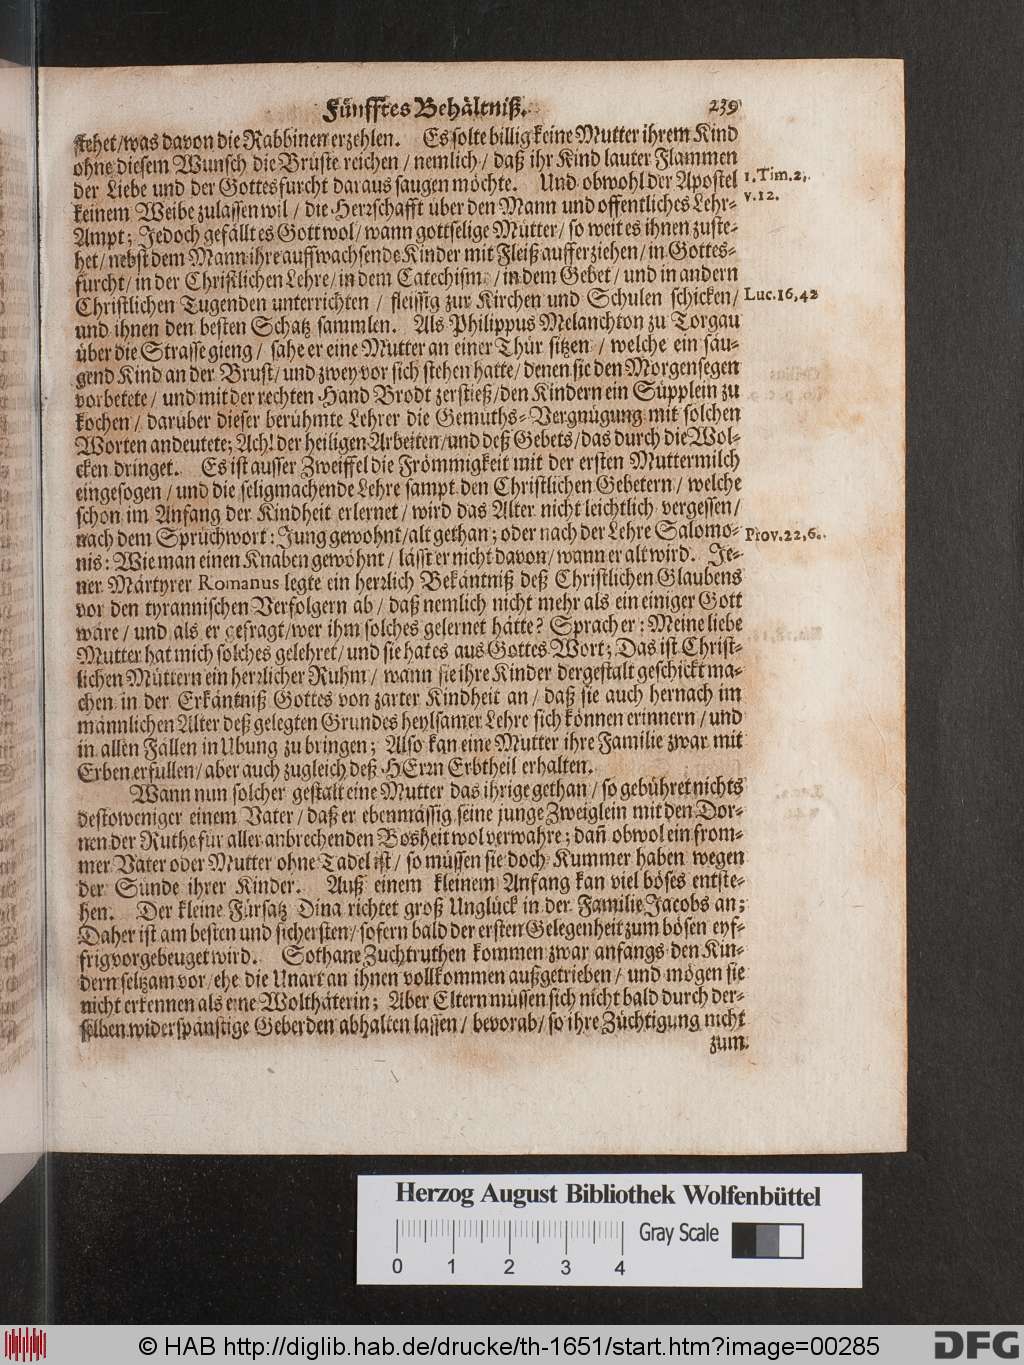 Fünfftes Behältniß. 239
stehet/was davon die Rabbinen erzehlen. Es solte billig keine Mutter ihrem Kind
ohne diesem Wunsch die Brüste reichen / nemlich / daß ihr Kind lauter Flammen
der Liebe und der Gottesfurcht daraus saugen möchte. Und obwohl der Apostel
1. Tim. 2,
v. 12.
keinem Weibe zulassen wil / die Herrschafft über den Mann und offentliches Lehr-
Ampt; Jedoch gefällt es Gott wol/ wann gottselige Mütter/ so weit es ihnen zuste-
het/ nebst dem Mann ihre auffwachsende Kinder mit Fleiß aufferziehen/ in Gottes-
furcht/ in der Christlichen Lehre/ in dem Catechismo/ in dem Gebet/ und in andern
Christlichen Tugenden unterrichten / fleissig zur Kirchen und Schulen schicken/
Luc. 16, 42
und ihnen den besten Schatz sammlen. Als Philippus Melanchton zu Torgau
über die Strasse gieng / sahe er eine Mutter an einer Thür sitzen / welche ein säu-
gend Kind an der Brust/ und zwey vor sich stehen hatte/ denen sie den Morgensegen
vorbetete / und mit der rechten Hand Brodt zerstieß/den Kindern ein Süpplein zu
kochen / darüber dieser berühmte Lehrer die Gemüths-Vergnügung mit solchen
Worten andeutete; Ach! der heiligen Arbeiten/und deß Gebets/das durch die Wol-
cken dringet. Es ist ausser Zweiffel die Frömmigkeit mit der ersten Muttermilch
eingesogen / und die seligmachende Lehre sampt den Christlichen Gebetern/ welche
schon im Anfang der Kindheit erlernet / wird das Alter nicht leichtlich vergessen/
nach dem Sprüchwort: Jung gewohnt/alt gethan; oder nach der Lehre Salomo-
Prov. 22, 6.
nis: Wie man einen Knaben gewöhnt / lässt er nicht davon/ wann er alt wird. Je-
ner Märtyrer Romanus legte ein herrlich Bekäntniß deß Christlichen Glaubens
vor den tyrannischen Verfolgern ab / daß nemlich nicht mehr als ein einiger Gott
wäre / und als er gefragt/wer ihm solches gelernet hätte? Sprach er: Meine liebe
Mutter hat mich solches gelehret/ und sie hat es aus Gottes Wort; Das ist Christ-
lichen Müttern ein herrlicher Ruhm/ wann sie ihre Kinder dergestalt geschickt ma-
chen in der Erkäntniß Gottes von zarter Kindheit an / daß sie auch hernach im
männlichen Alter deß gelegten Grundes heylsamer Lehre sich können erinnern / und
in allen Fällen in Ubung zu bringen; Also kan eine Mutter ihre Familie zwar mit
Erben erfüllen/ aber auch zugleich deß HErrn Erbtheil erhalten.
Wann nun solcher gestalt eine Mutter das ihrige gethan/ so gebühret nichts
destoweniger einem Vater/ daß er ebenmässig seine junge Zweiglein mit den Dor-
nen der Ruthe für aller anbrechenden Bosheit wol verwahre; dañ obwol ein from-
mer Vater oder Mutter ohne Tadel ist/ so müssen sie doch Kummer haben wegen
der Sünde ihrer Kinder. Auß einem kleinem Anfang kan viel böses entste-
hen. Der kleine Fürsatz Dina richtet groß Unglück in der Familie Jacobs an;
Daher ist am besten und sichersten/ sofern bald der ersten Gelegenheit zum bösen eyf-
frig vorgebeuget wird. Sothane Zuchtruthen kommen zwar anfangs den Kin-
dern seltzam vor/ ehe die Unart an ihnen vollkommen außgetrieben / und mögen sie
nicht erkennen als eine Wolthäterin; Aber Eltern müssen sich nicht bald durch der-
selben widerspänstige Geberden abhalten lassen/ bevorab/ so ihre Züchtigung nicht
zum
Herzog August Bibliothek Wolfenbüttel
Gray Scale
0 1 2 3 4
© HAB http://diglib.hab.de/drucke/th-1651/start.htm?image=00285
DFG